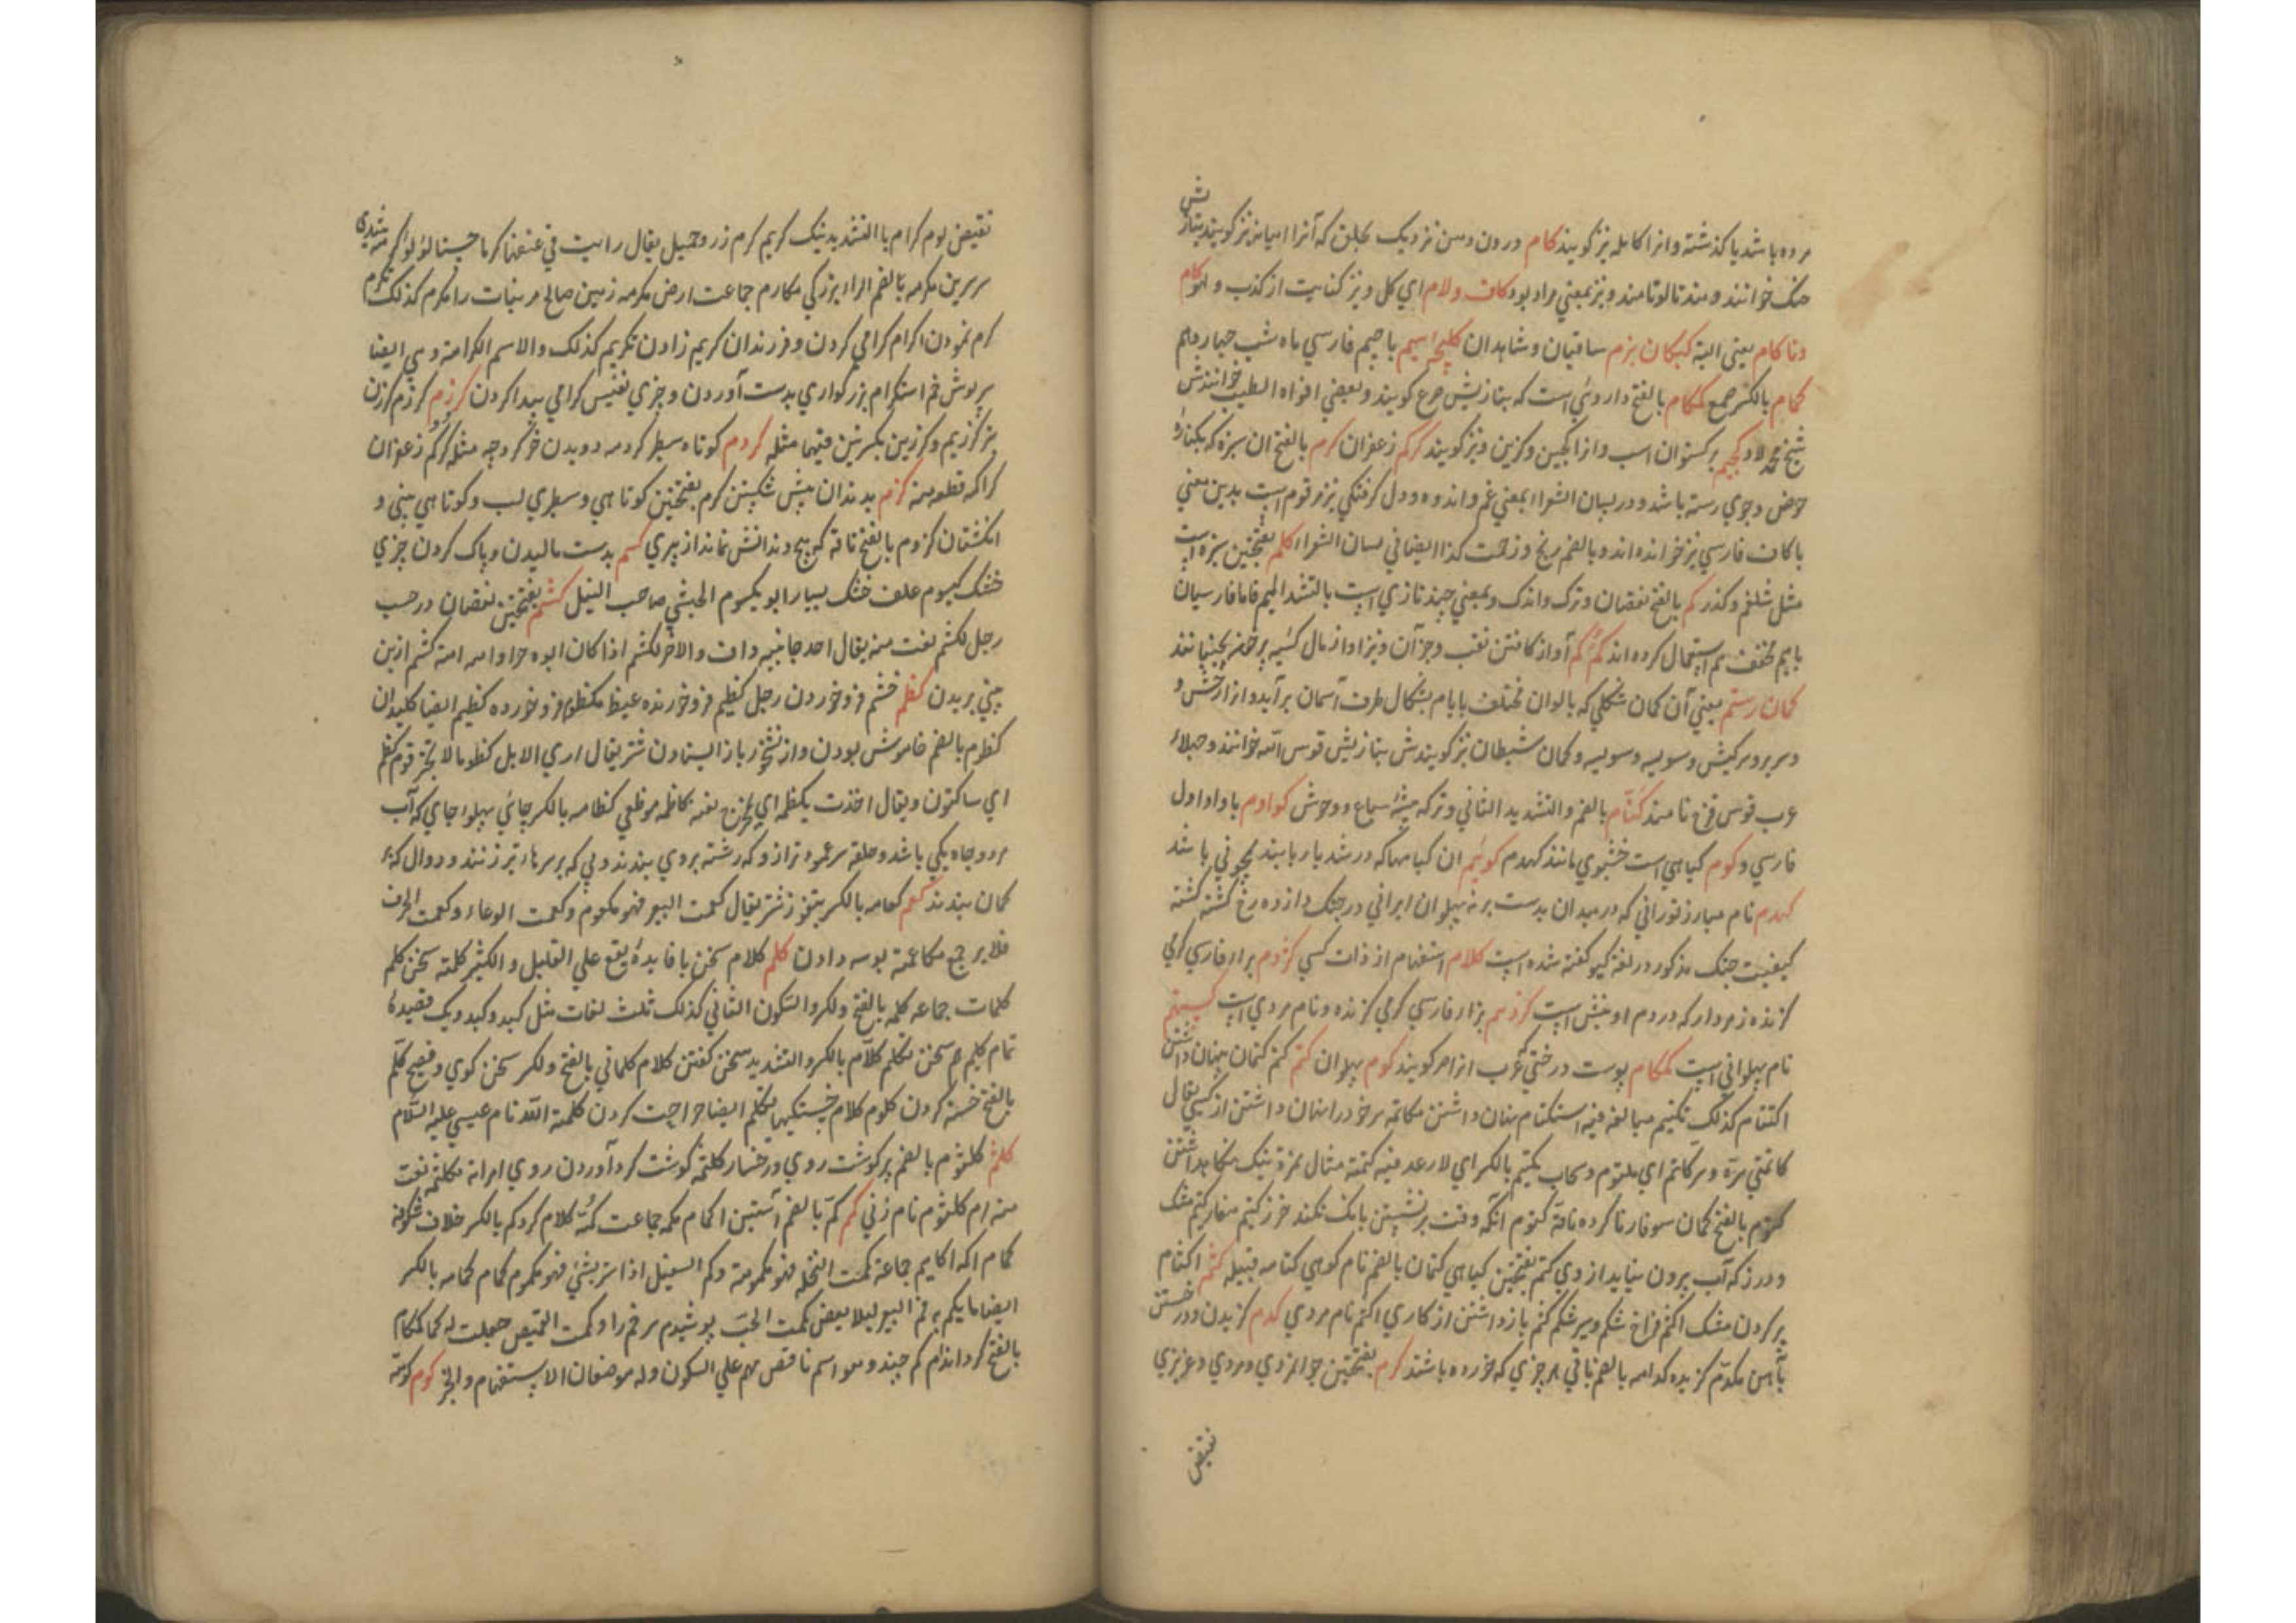 مرده باشد یا گذشته و انرا کامله نیز گویند کام درون دهن نزدیک بحلق که آنرا میانه نیز گویند بتازیش
حنک خوانند و هندتالوتامند و نیز بمعنی مراد بود کاف ولام ای کل و نیز کنایت از کذب و لوکام
وناکام یعنی البته کبکان بزم ساقیان و شاهدان کلیچه سیم با جیم فارسی ماه شب چهاردهم
کمام بالکسر جمع کمکام بالفتح داروئی است که بتازیش ضرع گویند و بعضی افواه الطیب خوانندش
شیخ محمد لاد کجیم برگستوان اسب و از انجیین و کزین و نیز گویند کرکم زعفران کرم بالفتح ان سبزه که بکناره
حوض و جوی رسته باشد و در لسان الشعرا بمعنی غم و اندوه و دل گرفتگی نیز مرقوم است بدین معنی
با کاف فارسی نیز خوانده اند و بالضم رنج و زحمت کذا ایضا فی لسان الشعرا کلم بفتحتین سبزه است
مثل شلغم و گذر کم بالفتح نقصان و ترک و اندک و بمعنی چند تازی است بالتشد المیم فاما فارسیان
با میم مخفف هم استعمال کرده اند کم کم آواز کافتن نقب و جز آن و نیز اواز مال کسیه پر خفر بجنبانند
کمان رستم یعنی آن کمان شکلی که بالوان مختلف بایام بشکال طرف آسمان برآید و از ارخش و
وسربروسرکیش و سولیه و سولیه و کمان شیطان نیز گویندش بتازیش قوس الله خوانند و جهلاء
عرب قوس قزح نامند کنام بالضم والتشدید الثانی و ترکه میشهٔ سباع و وحوش کوادم با واو اول
فارسی و کوم گیاهی است خشبوی مانند کهدم کوئیم ان گیاهها که در شدیار یابند بچونی باشد
کهدم نام مبارز تورانی که در میدان بدست برته پهلوان ایرانی در جنگ دوازده رخ کشته گشته
کیفیت جنگ مذکور در لغة کیو گفته شده است کلام استفهام از ذات کسی کژدم بزار فارسی کرمی
گزنده زهردار که در دم او نیش است کزدهم بزار فارسی کرمی گزنده و نام مردی است کستهم
نام پهلوانی است کمکام پوست درختی که عرب از امر گویند کوم پهلوان کتم کتم کتمان پنهان داشتن
اکتتام کذلک تکتیم مبالغه فیه استکتام پنهان داشتن مکاتمه سر خود را پنهان داشتن از کسی یقال
کاتمنی سرّه و سر کاتم ای مکتوم و سحاب مکتتم بالکسر ای لا رعد فیه کتمة مثال همزة نیک نگاهداشتن
کتوم بالفتح کمان سوفارنا کرده ناقة کتوم انکه وقت برنشستن بانک نکند خرز کتیم سفارکتم مشک
و درز که آب برون نیاید از وی کتم بفتحتین گیاهی کتمان بالضم نام کوهی کتامه قبیله کثم اکثام
پر کردن مشک اکثم فراخ شکم و سیر شکم کثم بازداشتن از کاری اکثم نام مردی کدم گزیدن و در خستن
بآهن مکدّم گزیده کدامه بالضم باقی هر چیزی که خورده باشند کرم بفتحتین جوانمردی و مردی و عزیزی
نقیض
نقیض لوم کرام باالتشدید نیک کریم کرم زر وجمیل یقال رایت فی عنقها کرما حسنا لؤلؤا کرمه شدی
سرسرین مکرمه بالضم الراء بزرکی مکارم جماعت ارض مکرمه زمین صالح مر نبات را مکرم کذلک تکرم
کرم نمودن اکرام کرامی کردن و فرزندان کریم زادن تکریم کذلک والاسم الکرامة وهی ایضا
سرپوش خم استکرام بزرکواری بدست آوردن و چیزی نفیس کرامی پیدا کردن کرزم کرزم کرزن
تبر کرزیم و کرزین بکسرتین فیهما مثله کردم کوتاه سطبر کردمه دویدن خر کروجه مثله کرکم زعفران
کراکمه قطعه منه کزم بدندان پیش شکستن کزم بفتحتین کوتاهی و سطبری لب و کوتاهی بینی و
انکشتان کزوم بالفتح ناقة که هیچ دندانش نماند از پیری کسم بدست مالیدن و پاک کردن چیزی
خشک کیسوم علف خشک بسیار ابو یکسوم الحبشی صاحب الفیل کشم بفتحتین نقصان در حسب
رجل اکشم نعت منه یقال احد جانبیه واف والاخر اکشم اذا کان ابوه حرا وامه امة کشم از بن
بینی بریدن کظم خشم فرو خوردن رجل کظیم فرو خورنده غیظ مکظوم فرو خورده کظیم ایضا کلیدان
کظوم بالضم خاموش بودن و از نشخر باز ایستادن شتر یقال اری الابل کظوما لا تجتر قوم کظم
ای ساکتون ویقال اخذت بکظمه ای بمخرج نفسه کاظمه موظعی کظامه بالکسر چاهی پهلوء چاهی که آب
هر دو چاه یکی باشد و حلقه سر عمود ترازو که رشته بروی بندند و پی که بر سر هاء تیر زنند و دوال که بر
کمان بندند کعم کعامه بالکسر پتفوز شتر یقال کعمت البعیر فهو مکعوم و کعمت الوعاء و کعمت الخوف
فلا یرجع مکاعمة بوسه دادن کلم کلام سخن با فایدهٔ یقع علی القلیل و الکثیر کلمة سخن کلم
کلمات جماعه کلمه بالفتح ولکسر والسکون الثانی کذلک ثلث لغات مثل کبد و کبد و کبد و یک قصیدهٔ
تمام کلیم هم سخن تکلم کلام بالکسر والتشدید سخن گفتن کلام کلمانی بالفتح ولکسر سخن گوی و فصیح کلم
بالفتح خسته کردن کلوم کلام خستگیها تکلم ایضا جراحت کردن کلمة الله نام عیسی علیه السلام
کلثم کلثوم بالضم پرکوشت روی و رخسار کلثمه کوشت گرد آوردن روی امراة مکلثمه نعت
منه ام کلثوم نام زنی کم کمّ بالضم آستین اکمام کممه جماعت کمّه کلام گرد کم بالکسر غلاف شکوفه
کمام اکمه اکامیم جماعة کمت النخله فهو مکمومة وکم الفسیل اذا ستر بشئ فهو مکموم کمام کمامه بالکسر
ایضا ما یکم به فم البعیر لیلا یعض کممت الحب پوشیدم سر خم را و کممت القمیص جعلت له کما کمکام
بالفتح گرد اندام کم چند و هو اسم ناقص مبهم علی السکون وله موضعان الاستفهام والخبر کوم کومة